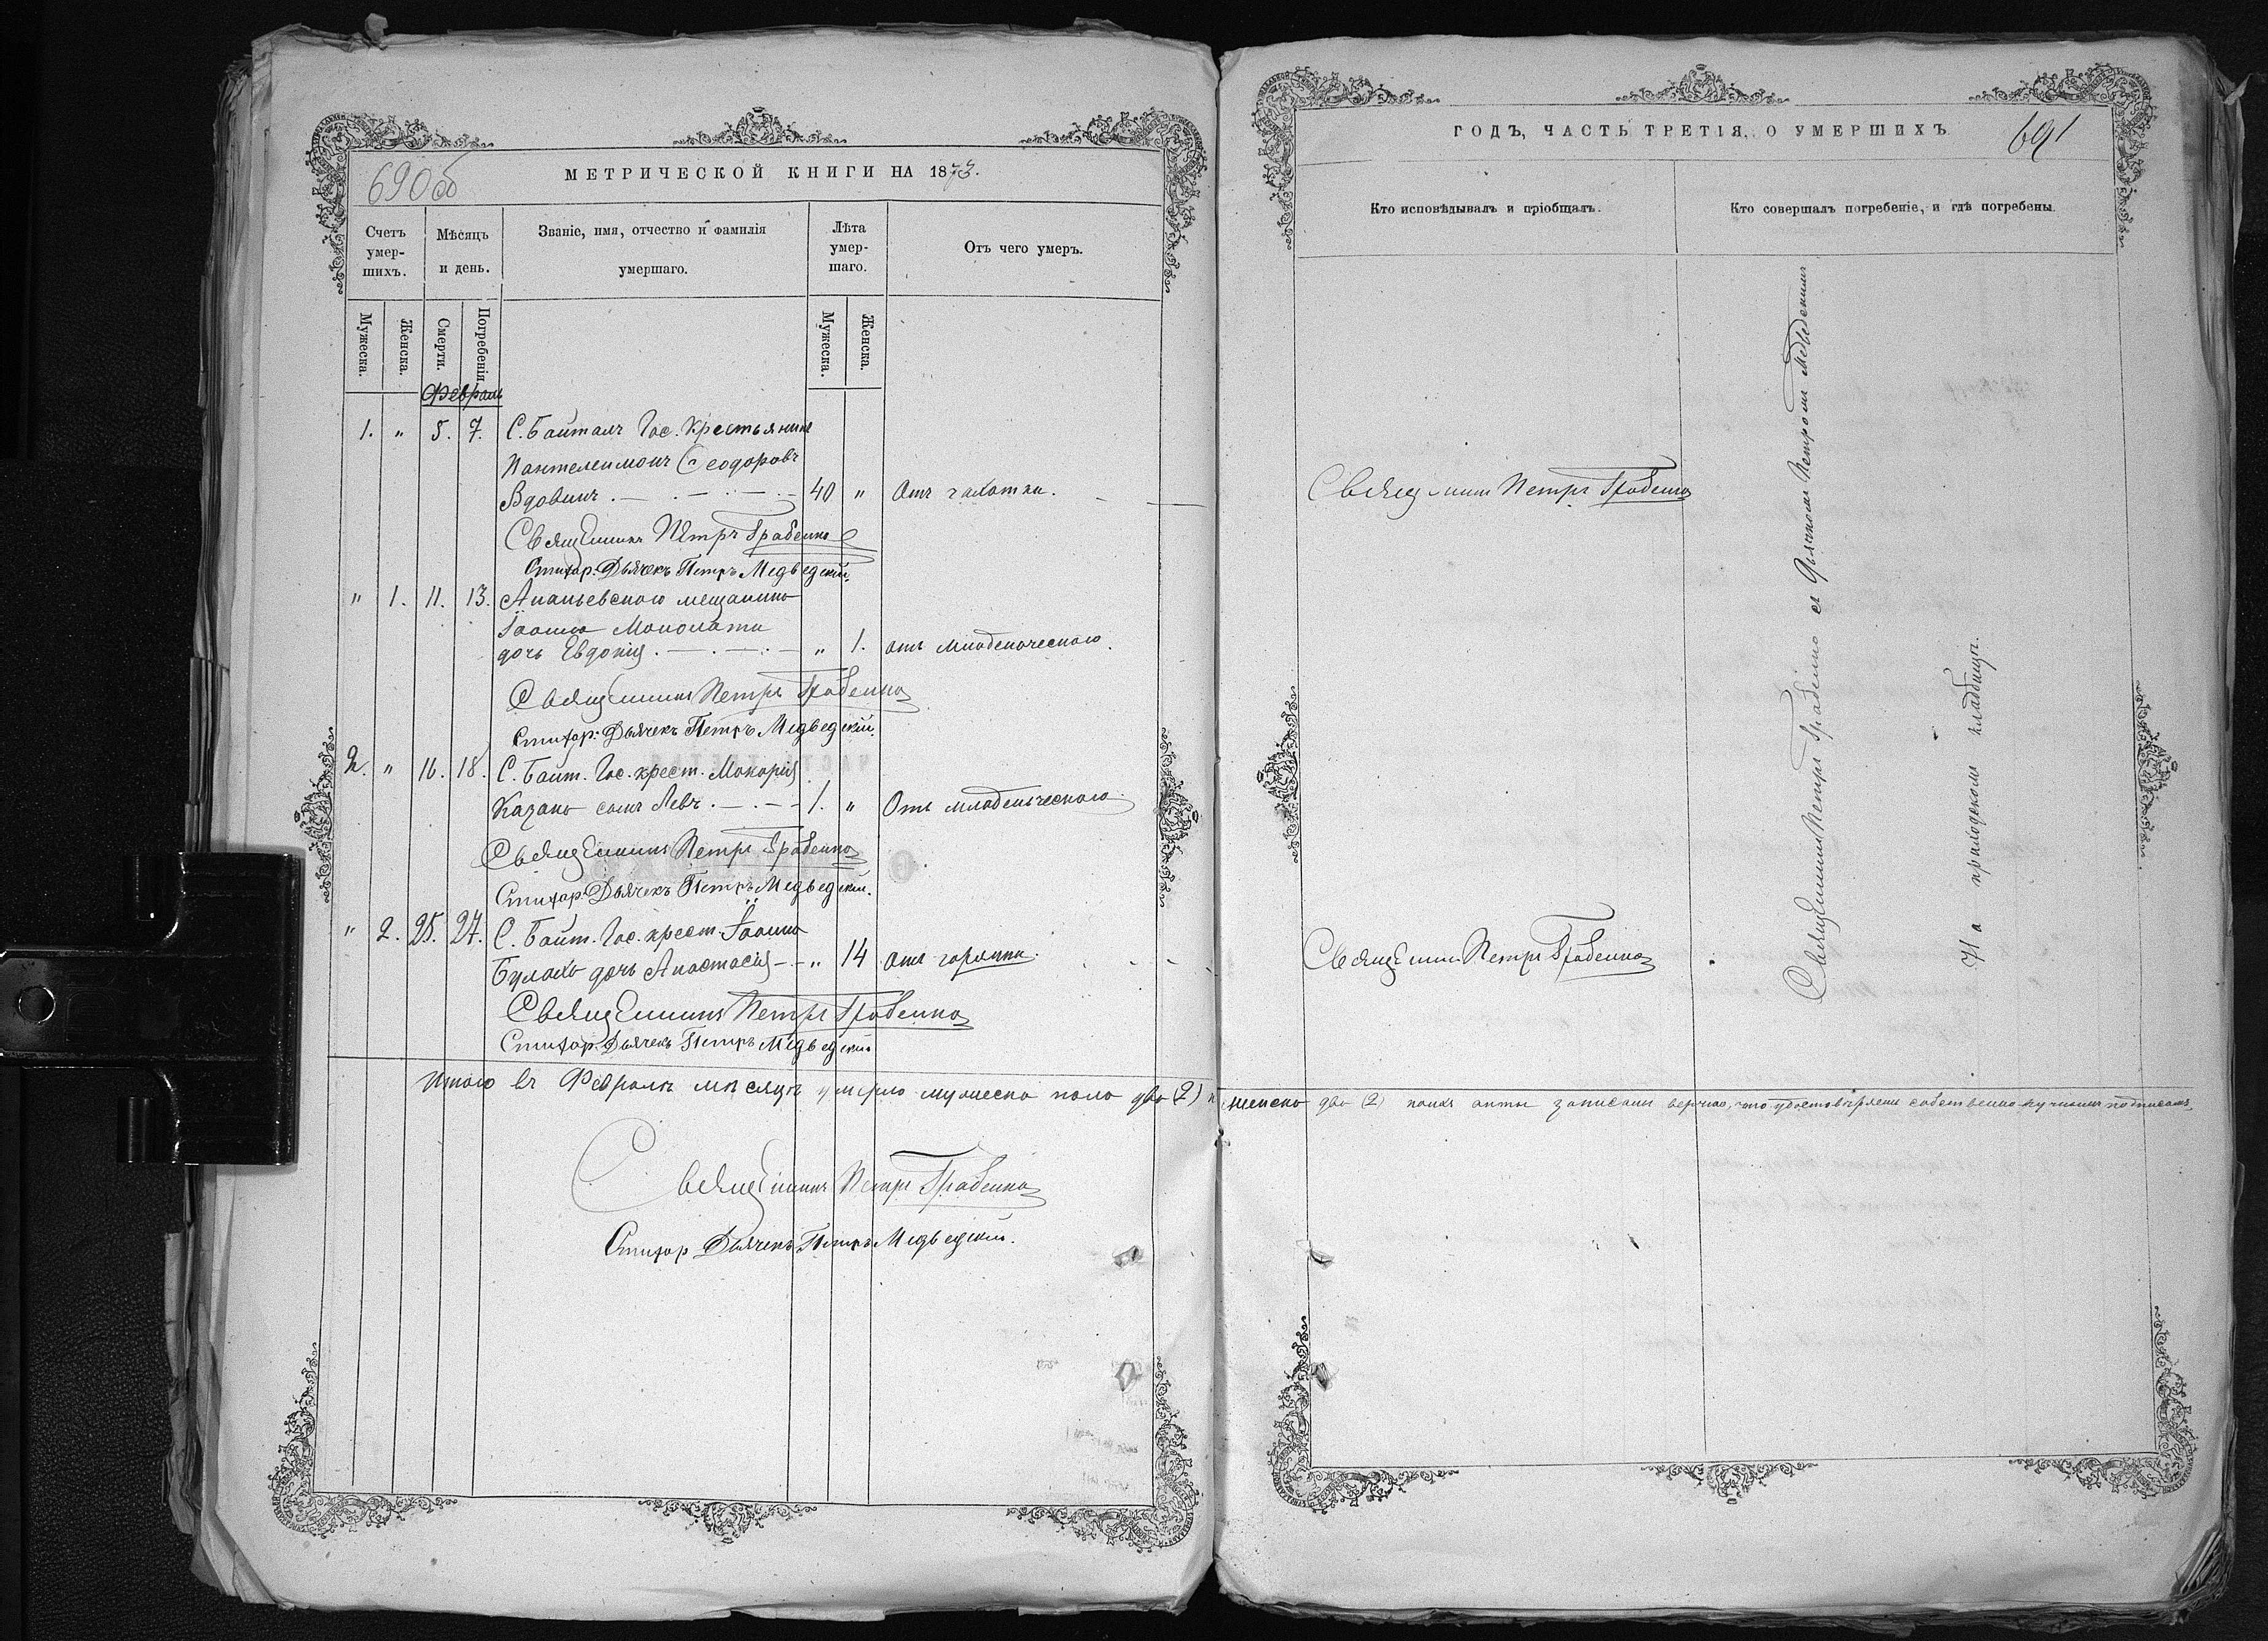 690об
МЕТРИЧЕСКОЙ КНИГИ НА 1873.
Счетъ умер-шихъ.
Мѣсяцъ и день.
Званіе, имя, отчество и фамилія умершаго.
Лѣта умер-шаго.
Отъ чего умеръ.
Мужеска.
Женска.
Смерти.
Погребенія
Мужеска.
Женска.
Февраль
1. " 5. 7. С. Байталъ Гос. Крестьянинъ
Пантелеимонъ Ѳеодоровъ
Вдовинъ . — . — . — . — 40 " Отъ чахотки.
Священникъ Петръ Грабенко
Стихар: Дьячекъ Петръ Медведскій.
" 1. 11. 13. Ананьевскаго мещанина
Іоанна
дочь Евдокія . — . — . — " 1. отъ младенческаго.
Священникъ Петръ Грабенко
Стихар: Дьячекъ Петръ Медведскій.
2. " 16. 18. С. Байт. Гос. крест. Макарія
Казака сынъ Левъ . — . — 1. " Отъ младенческаго.
Священникъ Петръ Грабенко
Стихар: Дьячекъ Петръ Медведскій.
" 2. 25. 27. С. Байт. Гос. крест. Іоанна
дочь Анастасія — " 14 отъ горячки.
Священникъ Петръ Грабенко
Стихар: Дьячекъ Петръ Медведскій
Итого въ Февралѣ мѣсяцѣ умерло мужеска пола два (2) и женска два (2) акты записаны верно, что удостовѣряемъ собственноручнымъ подписомъ,
Священникъ Петръ Грабенко
Стихар Дьячекъ Петръ Медведскій.
ГОДЪ, ЧАСТЬ ТРЕТІЯ, О УМЕРШИХЪ
691
Кто исповѣдывалъ и пріобщалъ.
Кто совершалъ погребеніе, и гдѣ погребены.
Священникъ Петръ Грабенко
Священникъ Петръ Грабенко
Священникъ Петръ Грабенко съ Дьячкомъ Петромъ Медведскимъ
На приходскомъ кладбищѣ.